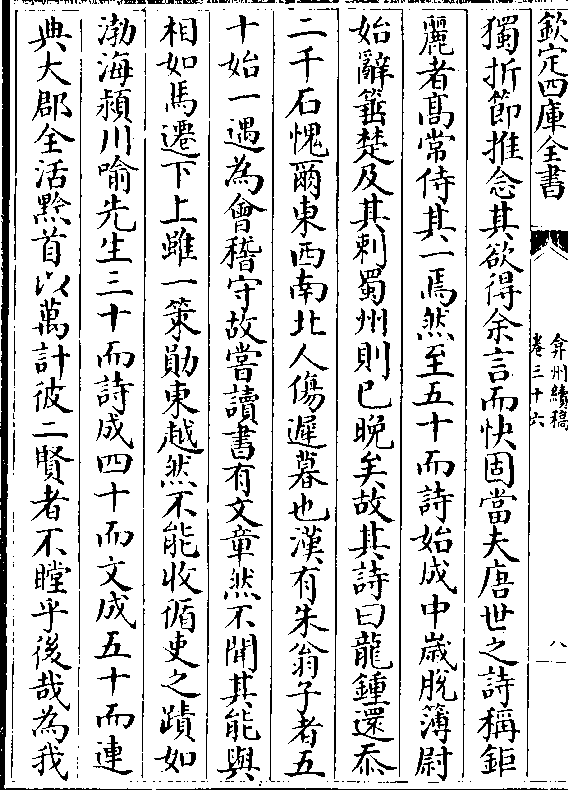 欽定四庫全書
弇州續稿
卷三十六
八
獨折節推念其欲得余言而快固當夫唐世之詩稱鉅
麗者髙常侍其一焉然至五十而詩始成中歳脱簿尉
始辭箠楚及其刺蜀州則已晩矣故其詩曰龍鍾還忝
二千石愧爾東西南北人傷遲暮也漢有朱翁子者五
十始一遇為會稽守故嘗讀書有文章然不聞其能與
相如馬遷下上雖一策勛東越然不能收循吏之蹟如
渤海潁川喻先生三十而詩成四十而文成五十而連
典大郡全活黔首以萬計彼二賢者不瞠乎後哉為我